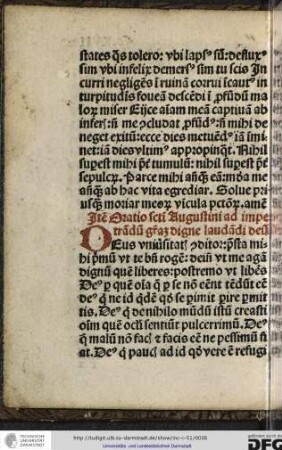 states q̃s tolero: vbi lapsꝰ sũ: defluxꝰ
sum vbi infelix demersꝰ sim tu scis In
curri negligẽs ĩ ruinã corrui ĩcautꝰ in
turpitudĩs foueã descẽdi ĩ ꝓfũdũ ma
lorꝝ miser Eijce aĩam meã captiuã ab
inferĩ: ñ me p̱cludat ꝓfũdũ: ñ mihi de
neget exitũ: ecce dies metuẽdꝰ iã ĩmi
net: iã dies vltimꝰ appropinq̃t. Nihil
sup̱est mihi p̃t tumulũ: nihil sup̱est p̃t
sepulcꝝ. Parce mihi añq̃ eã: m̃ba me
añq̃ ab hac vita egrediar. Solue pri
usq̃ moriar meorꝝ vĩcula pctõrꝝ. amẽ
Itẽ Oratio scti Augustini ad impe
trãdũ gr̃az digne laudãdi deũ
Deus vniũsitatꝭ ↄditor: p̃sta mi
hi pͥmũ vt te bñ rogẽ: deiñ vt me agã
dignũ quẽ liberes: postremo vt liberes
Deꝰ p̱ quẽ oĩa q̃ p̱ se nõ eẽnt tẽdũt eẽ
deꝰ q̃ ne id qdẽ qd se p̱imit p̱ire p̱mit
tis. Deꝰ q̃ de nihilo mũdũ istũ creasti
oĩm quẽ oclĩ sentiũt pulcerrimũ. Deꝰ
q̃ malũ nõ facꝭ ⁊ facis eẽ ne pessimũ fi
at. Deꝰ q̃ paucꝭ ad id qd vere ẽ refugi
http://tudigit.ulb.tu-darmstadt.de/show/inc-i-51/0038
Universitäts- und Landesbibliothek Darmstadt
DFG